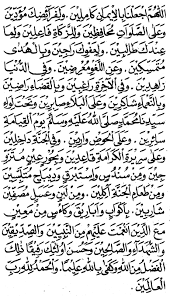 اَللّٰهُمَّ اجْعَلْنَا بِالْإِيْمَانِ كَامِلِيْنَ. وَلِفَرَائِضِكَ مُؤَدِّيْنَ
وَعَلَى الصَّلَوَاتِ مُحَافِظِيْنَ. وَلِلزَّكَاةِ فَاعِلِيْنَ. وَلِمَا
عِنْدَكَ طَالِبِيْنَ. وَلِعَفْوِكَ رَاجِيْنَ. وَبِالْهُدَى
مُتَمَسِّكِيْنَ. وَعَنِ اللَّغْوِ مُعْرِضِيْنَ. وَفِى الدُّنْيَا
زَاهِدِيْنَ. وَفِى الْآخِرَةِ رَاغِبِيْنَ. وَبِالْقَضَاءِ رَاضِيْنَ
وَبِالنَّعْمَاءِ شَاكِرِيْنَ. وَعَلَى الْبَلَاءِ صَابِرِيْنَ. وَتَحْتَ لِوَاءِ
سَيِّدِنَا مُحَمَّدٍ صَلَّى اللهُ عَلَيْهِ وَسَلَّمَ يَوْمَ الْقِيَامَةِ
سَائِرِيْنَ. وَعَلَى الْحَوْضِ وَارِدِيْنَ. وَفِى الْجَنَّةِ دَاخِلِيْنَ
وَعَلَى سَرِيْرِ الْكَرَامَةِ قَاعِدِيْنَ. وَبِحُوْرٍ عِيْنٍ مُتَزَوِّ
جِيْنَ. وَمِنْ سُنْدُسٍ وَاِسْتَبْرَقٍ وَدِيْبَاجٍ مُتَلَبِّسِيْنَ
وَمِنْ طَعَامِ الْجَنَّةِ آكِلِيْنَ. وَمِنْ لَبَنٍ وَعَسَلٍ مُصَفَّيْنِ
شَارِبِيْنَ. بِأَكْوَابٍ وَأَبَارِيْقَ وَكَأْسٍ مِنْ مَعِيْنٍ.
مَعَ الَّذِيْنَ أَنْعَمْتَ عَلَيْهِمْ مِنَ النَّبِيِّيْنَ وَالصِّدِّيْقِيْنَ
وَالشُّهَدَاءِ وَالصَّالِحِيْنَ وَحَسُنَ أُولٰئِكَ رَفِيْقًا ذٰلِكَ
الْفَضْلُ مِنَ اللهِ وَكَفَى بِاللهِ عَلِيْمًا. وَالْحَمْدُ لِلّٰهِ رَبِّ
الْعَالَمِيْنَ.